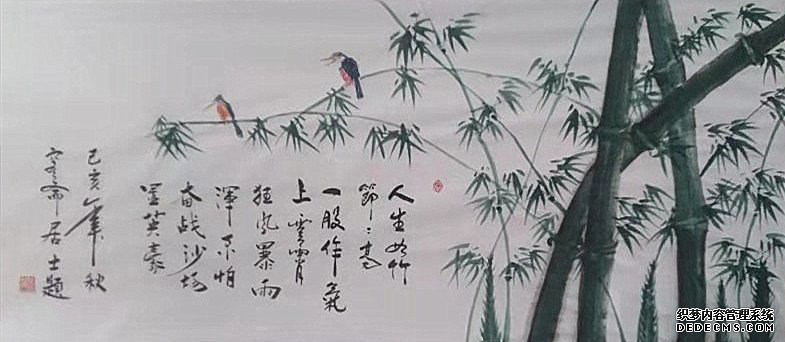 人生如竹
節〻高
一股作氣
上雲霄
狂风暴雨
渾不怕
奋战沙场
呈英豪
己亥年秋
斋居士题
织梦内容管理系统
DEDECMS.COM